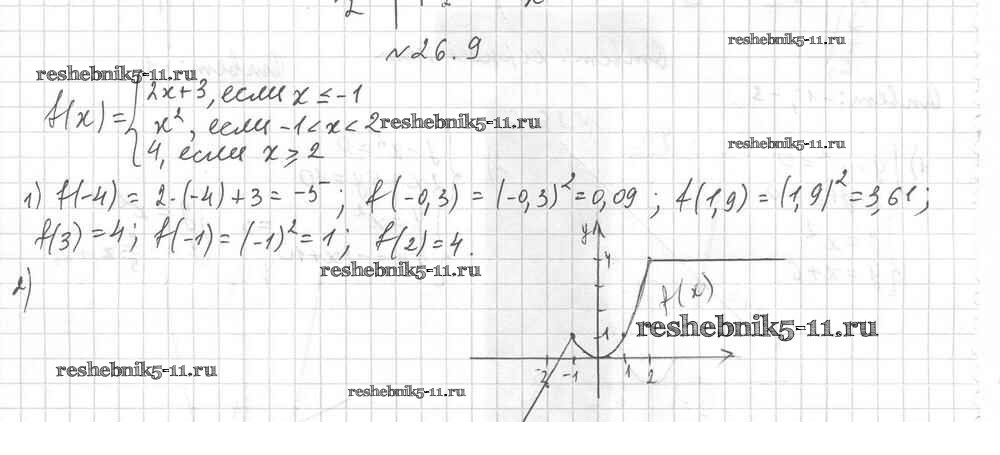 №26.9
reshebnik5-11.ru
reshebnik5-11.ru
2x+3, если x ≤ -1
f(x)= x², если -1 < x < 2
reshebnik5-11.ru
4, если x ⩾ 2
reshebnik5-11.ru
1) f(-4) = 2·(-4)+3 = -5; f(-0,3) = (-0,3)² = 0,09; f(1,9) = (1,9)² = 3,61;
f(3) = 4; f(-1) = (-1)² = 1; f(2) = 4.
reshebnik5-11.ru
2)
y
4
f(x)
1
reshebnik5-11.ru
-2 -1 1 2
reshebnik5-11.ru
reshebnik5-11.ru